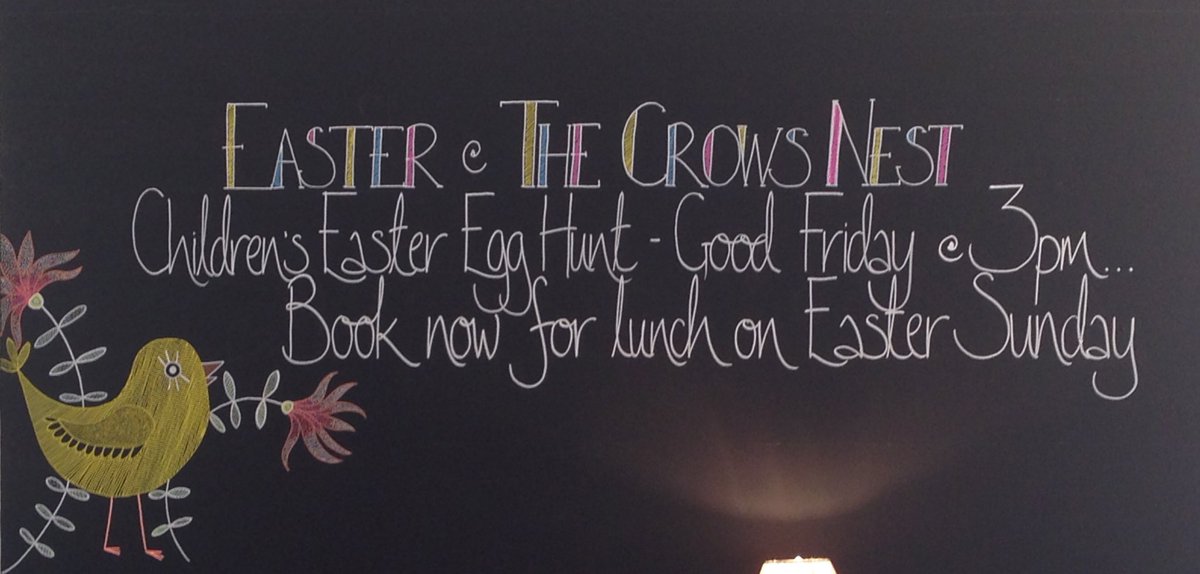 EASTER @ THE CROWS NEST
Children's Easter Egg Hunt - Good Friday @ 3pm...
Book now for lunch on Easter Sunday